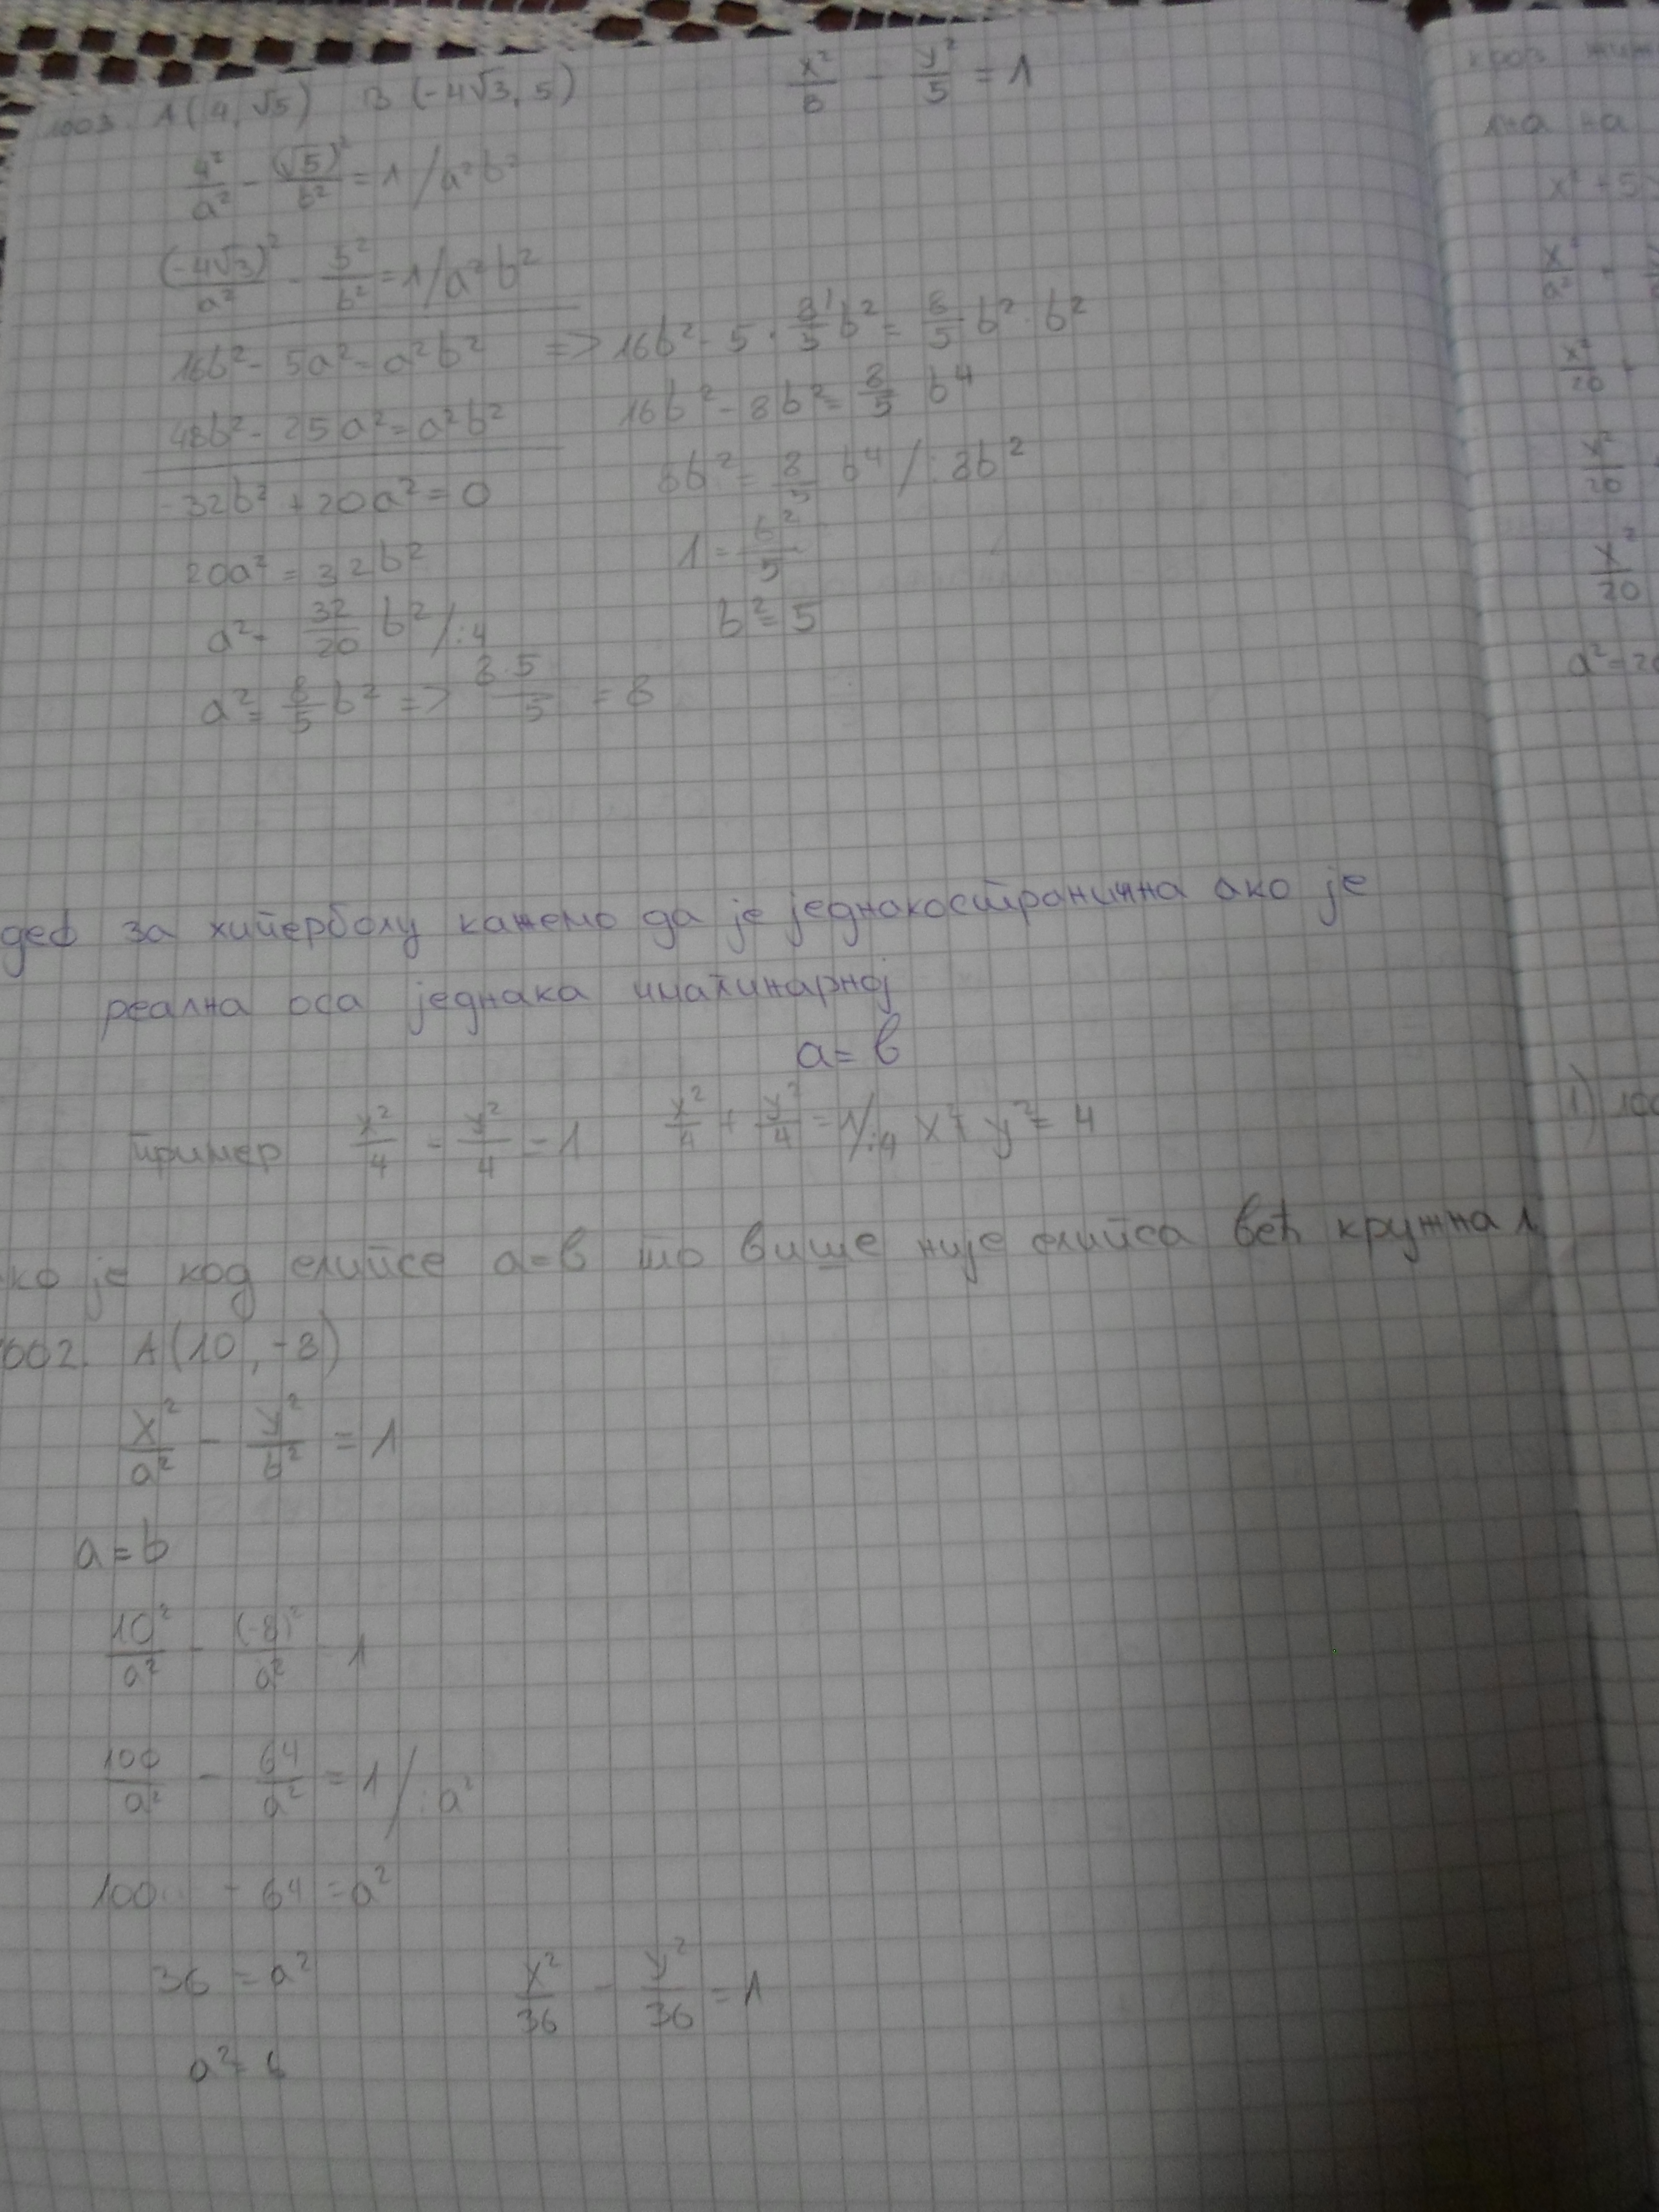 1003. A(4, √5) B(-4√3, 5)
x²/8 - y²/5 = 1
4²/a² - (√5)²/b² = 1 /a²b²
(-4√3)²/a² - 5²/b² = 1 /a²b²
16b² - 5a² = a²b² => 16b² - 5 · 8/5 b² = 8/5 b² · b²
48b² - 25a² = a²b²
16b² - 8b² = 8/5 b⁴
-32b² + 20a² = 0
8b² = 8/5 b⁴ /:8b²
20a² = 32b²
1 = b²/5
a² = 32/20 b² /:4
b² = 5
a² = 8/5 b² => 8·5/5 = 8
деф за хиперболу кажемо да је једнакостранична ако је
реална оса једнака имагинарној
a = b
пример x²/4 - y²/4 = 1 x²/4 + y²/4 = 1 /:4 x² + y² = 4
ко је код елипсе а=b то више није елипса већ кружна л
1002. A(10, -8)
x²/a² - y²/b² = 1
a = b
10²/a² - (-8)²/a² = 1
100/a² - 64/a² = 1 /:a²
100 - 64 = a²
36 = a²
x²/36 - y²/36 = 1
a² = 6
кроз
на
x² + 5
x²/a² +
x²/20 +
x²/20
x²/20
a² = 20
1) 100